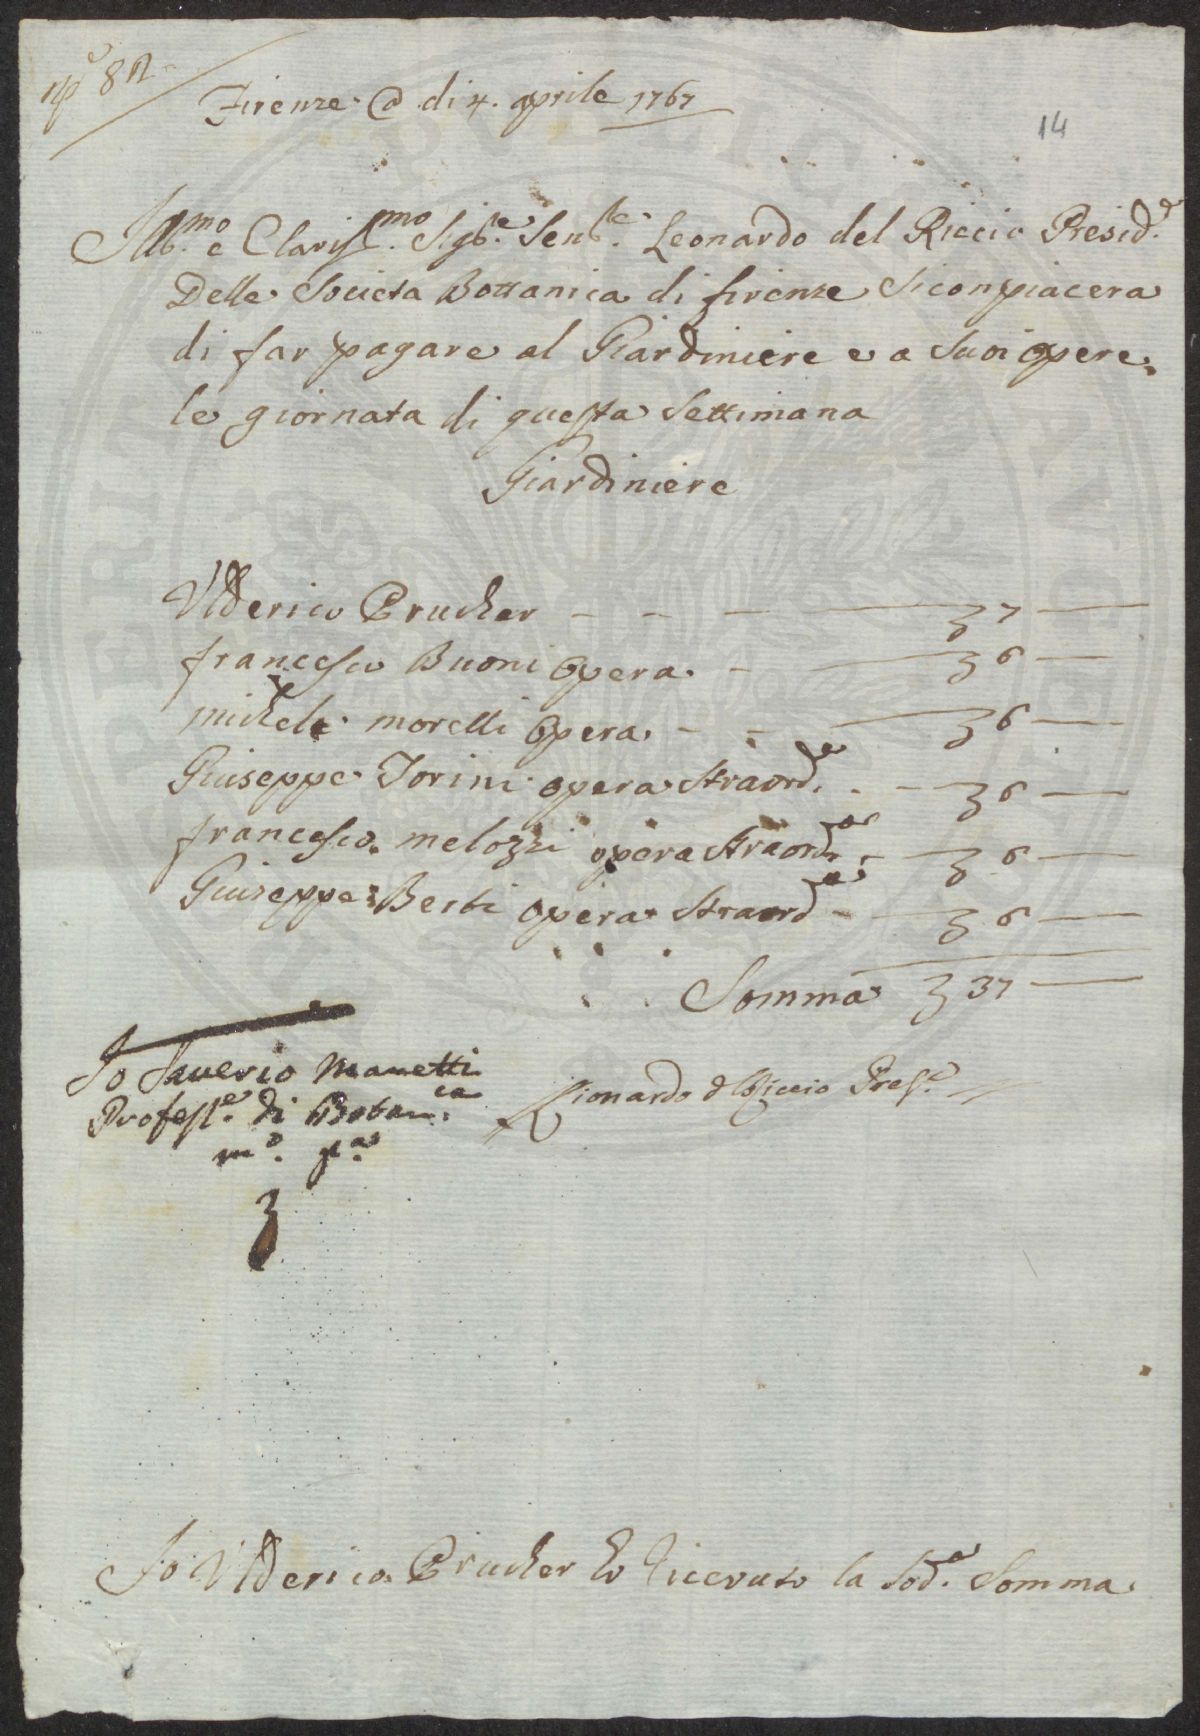 Firenze @ di 4. aprile 1767
14
Ill.mo e Clariss.mo Sig.re Sen.re Leonardo del Riccio Presid.e
Delle Societa Bottanica di firenze si conpiacera
di far pagare al Giardiniere e a Suoi opere
le giornata di questa Settimana
Giardiniere
Ulderico Prucker - - - 7
francesco Buoni Opera - 6
michele moretti Opera - - 6
Giuseppe Torini opera Straord.a - - 6
francesco melozzi opera Straord.a - 6
Giuseppe Berti opera Straord.a - 6
Somma 37
Io Saverio Manetti
Profess.e di Botan.ca
m.o p.a
Lionardo d Riccio Pres.e
Io Ulderico Prucker ho ricevuto la Sod.a Somma